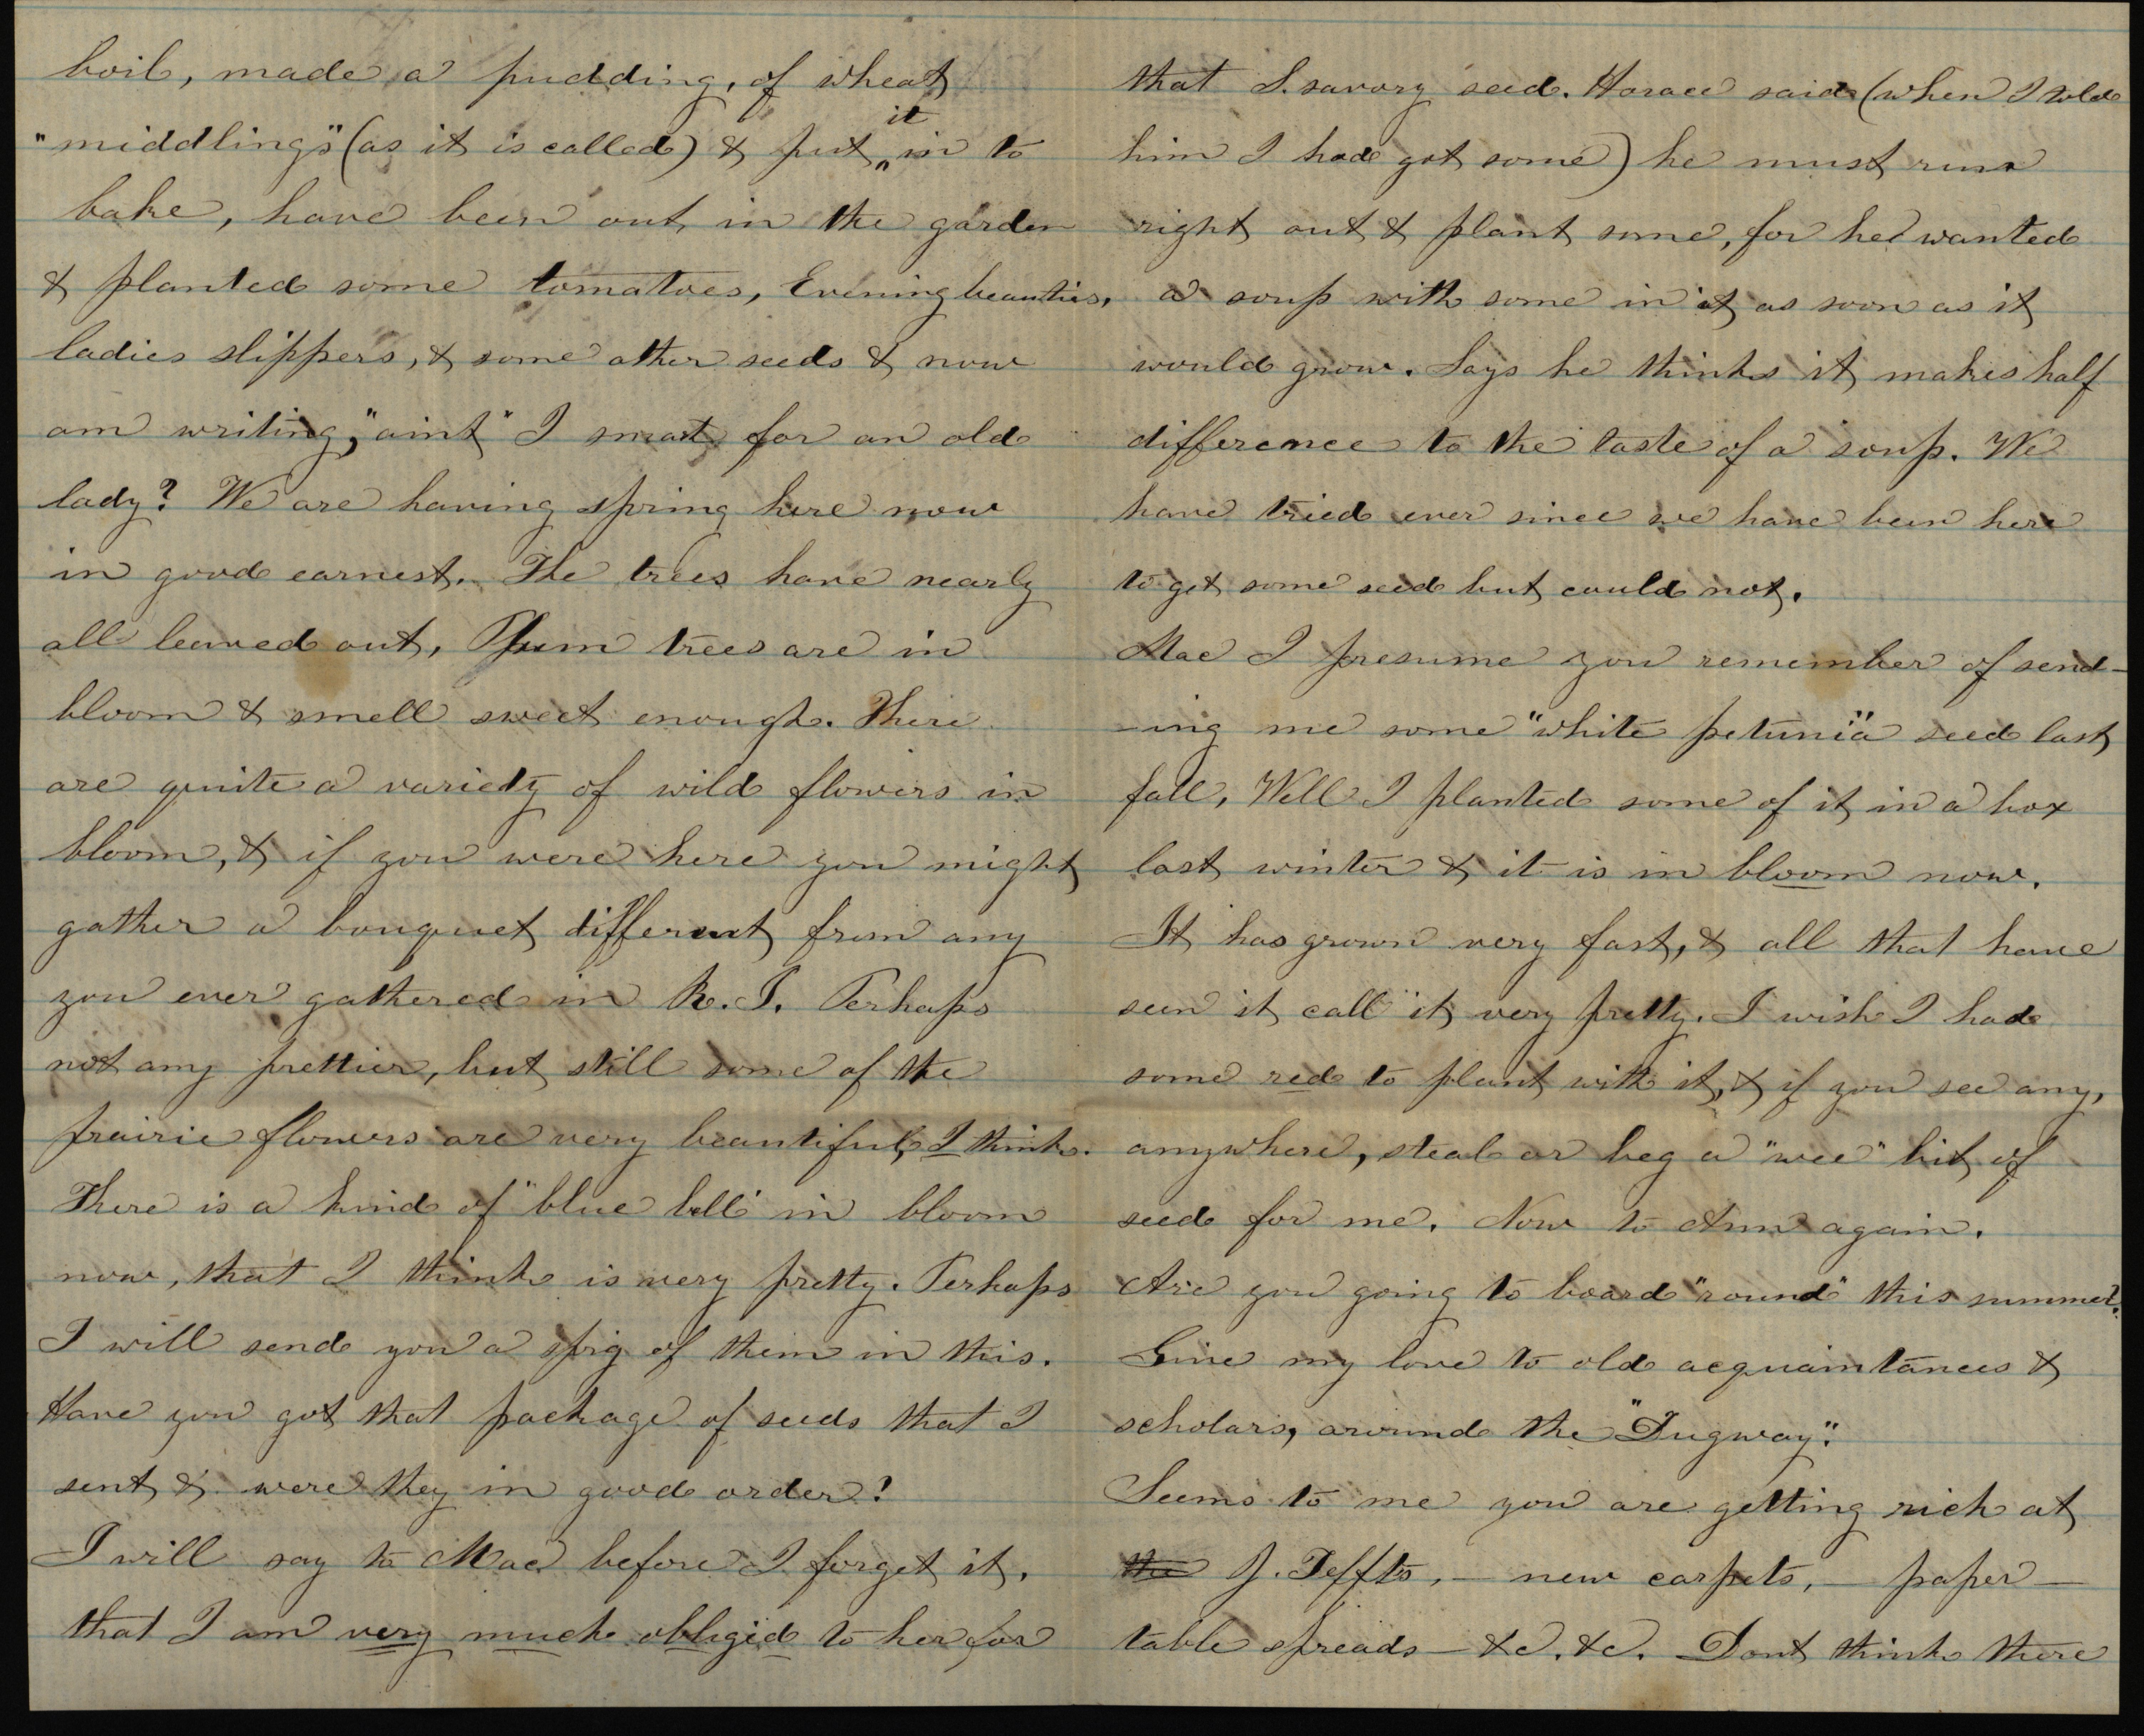 boil, made a pudding, of wheat
"middlings" (as it is called) & put it in to
bake, have been out in the garden
& planted some tomatoes, Evening beauties,
ladies slippers, & some other seeds & now
am writing, "aint" I smart for an old
lady? We are having spring here now
in good earnest. The trees have nearly
all leaved out, Plum trees are in
bloom & smell sweet enough. There
are quite a variety of wild flowers in
bloom, & if you were here you might
gather a bouquet different from any
you ever gathered in R.I. Perhaps
not any prettier, but still some of the
prairie flowers are very beautiful, I think.
There is a kind of "blue bell" in bloom
now, that I think is very pretty. Perhaps
I will send you a spig of them in this.
Have you got that package of seeds that I
sent & were they in good order?
I will say to Mae before I forget it,
that I am very much obliged to her for
that S. savory seed. Horace said (when I told
him I had got some) he must run
right out & plant some, for he wanted
a soup with some in it as soon as it
would grow. Says he thinks it makes half
difference to the taste of a soup. We
have tried ever since we have been here
to get some seed but could not.
Mae I presume you remember of send-
-ing me some "white petunia" seed last
fall, Well I planted some of it in a box
last winter & it is in bloom now.
It has grown very fast, & all that have
seen it call it very pretty. I wish I had
some red to plant with it, & if you see any,
anywhere, steal or beg a "wee" bit of
seed for me. Now to Ann again.
Are you going to board "round" this summer?
Give my love to old acquaintances &
scholars, around the "Dugway".
Seems to me you are getting rich at
the J. Teffts, — new carpets, — paper —
table spreads — &c. &c. Dont think there